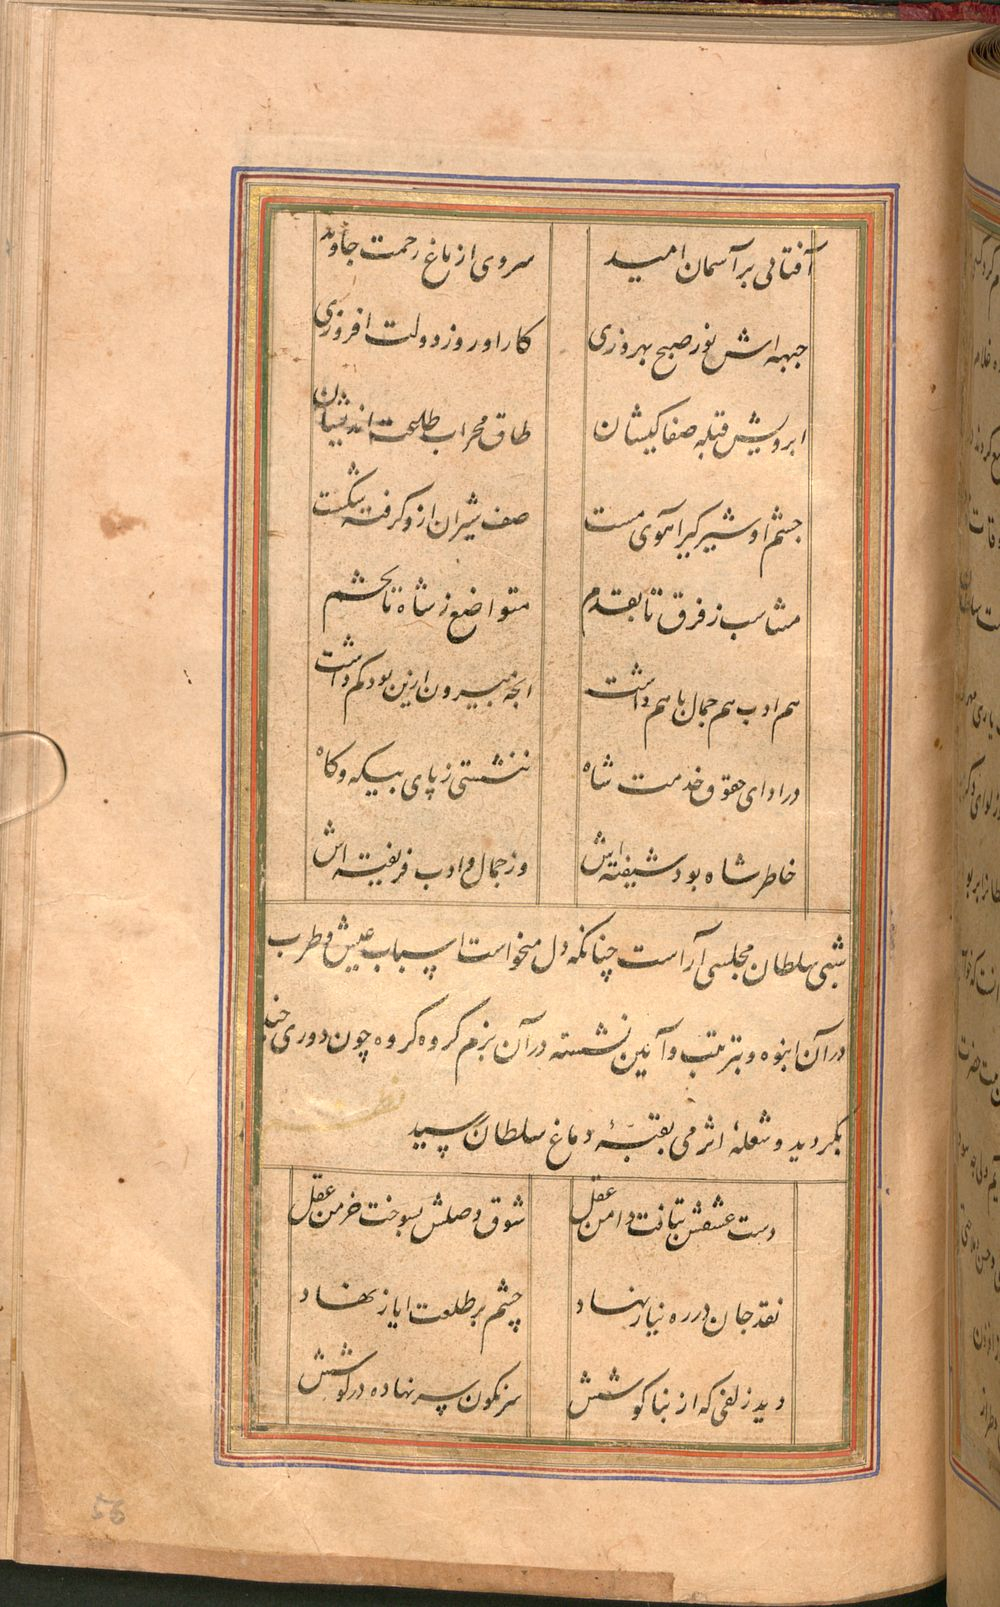 آفتابی بر آسمان امید سروی از باغ رحمت جاوید
جبهه اش نور صبح بهروزی کار او روز دولت افروزی
ابرویش قبله صفا کیشان طاق محراب طلعت اندیشان
چشم او شیر گیر آهوی مست صف شیران ازو گرفته شکست
متناسب ز فرق تا بقدم متواضع ز شاه تا بحشم
هم ادب هم جمال با هم داشت انچه بیرون ازین بود کم داشت
در ادای حقوق خدمت شاه ننشستی ز پای بیگه و گاه
خاطر شاه بود شیفته اش وز جمال و ادب فریفته اش
شبی سلطان مجلسی آراست چنانکه دل میخواست اسباب عیش و طرب
در آن انبوه و بترتیب و آیین نشسته در آن بزم گروه گروه چون دوری چند
بگردید و شعله اثر می بقبّهٔ دماغ سلطان رسید
دست عشقش بتافت دامن عقل شوق وصلش بسوخت خرمن عقل
نقد جان در ره نیاز نهاد چشم بر طلعت ایاز نهاد
دید زلفی که از بناگوشش سرنگون سر نهاده در گوشش
56